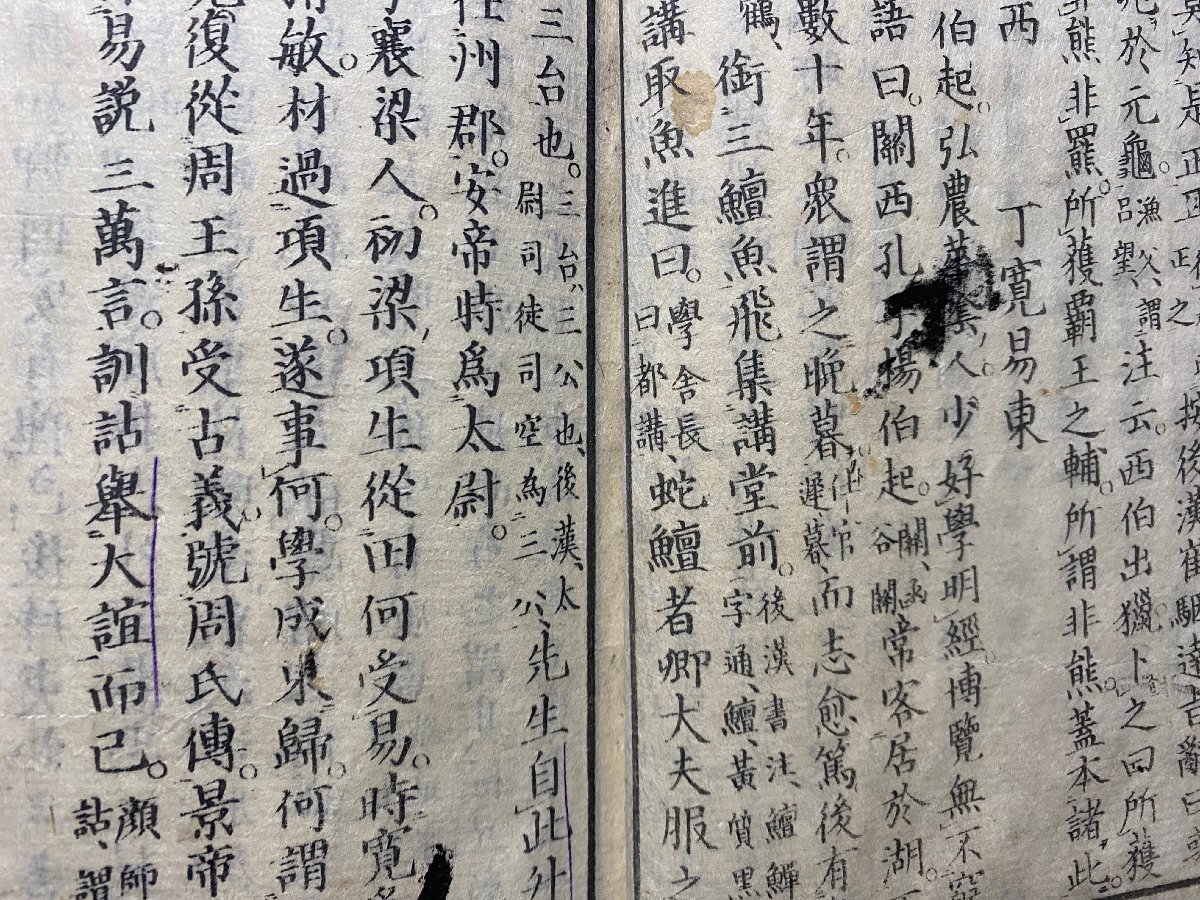 知是正
於元龜漁父謂注云西伯出獵卜之曰所獲
呂望
非熊非羆所獲霸王之輔所謂非熊蓋本諸此
西 丁寬易東
伯起弘農人少好學明經博覽無不
語曰關西孔子楊伯起關函常客居於湖
谷關
數十年衆謂之晚暮而志愈篤後有
遲暮
鶴銜三鱣魚飛集講堂前後漢書注鱣鱓
字通鱣黃質黑
講取魚進曰學舍長蛇鱣者卿大夫服之
曰都講
三台也三台三公也後漢太先生自此外
尉司徒司空為三公
州郡安帝時為太尉
襄梁人初梁項生從田何受易時寬
敏材過項生遂事何學成東歸何謂
復從周王孫受古義號周氏傳景帝
易説三萬言訓詁舉大誼而已顔師
詁謂